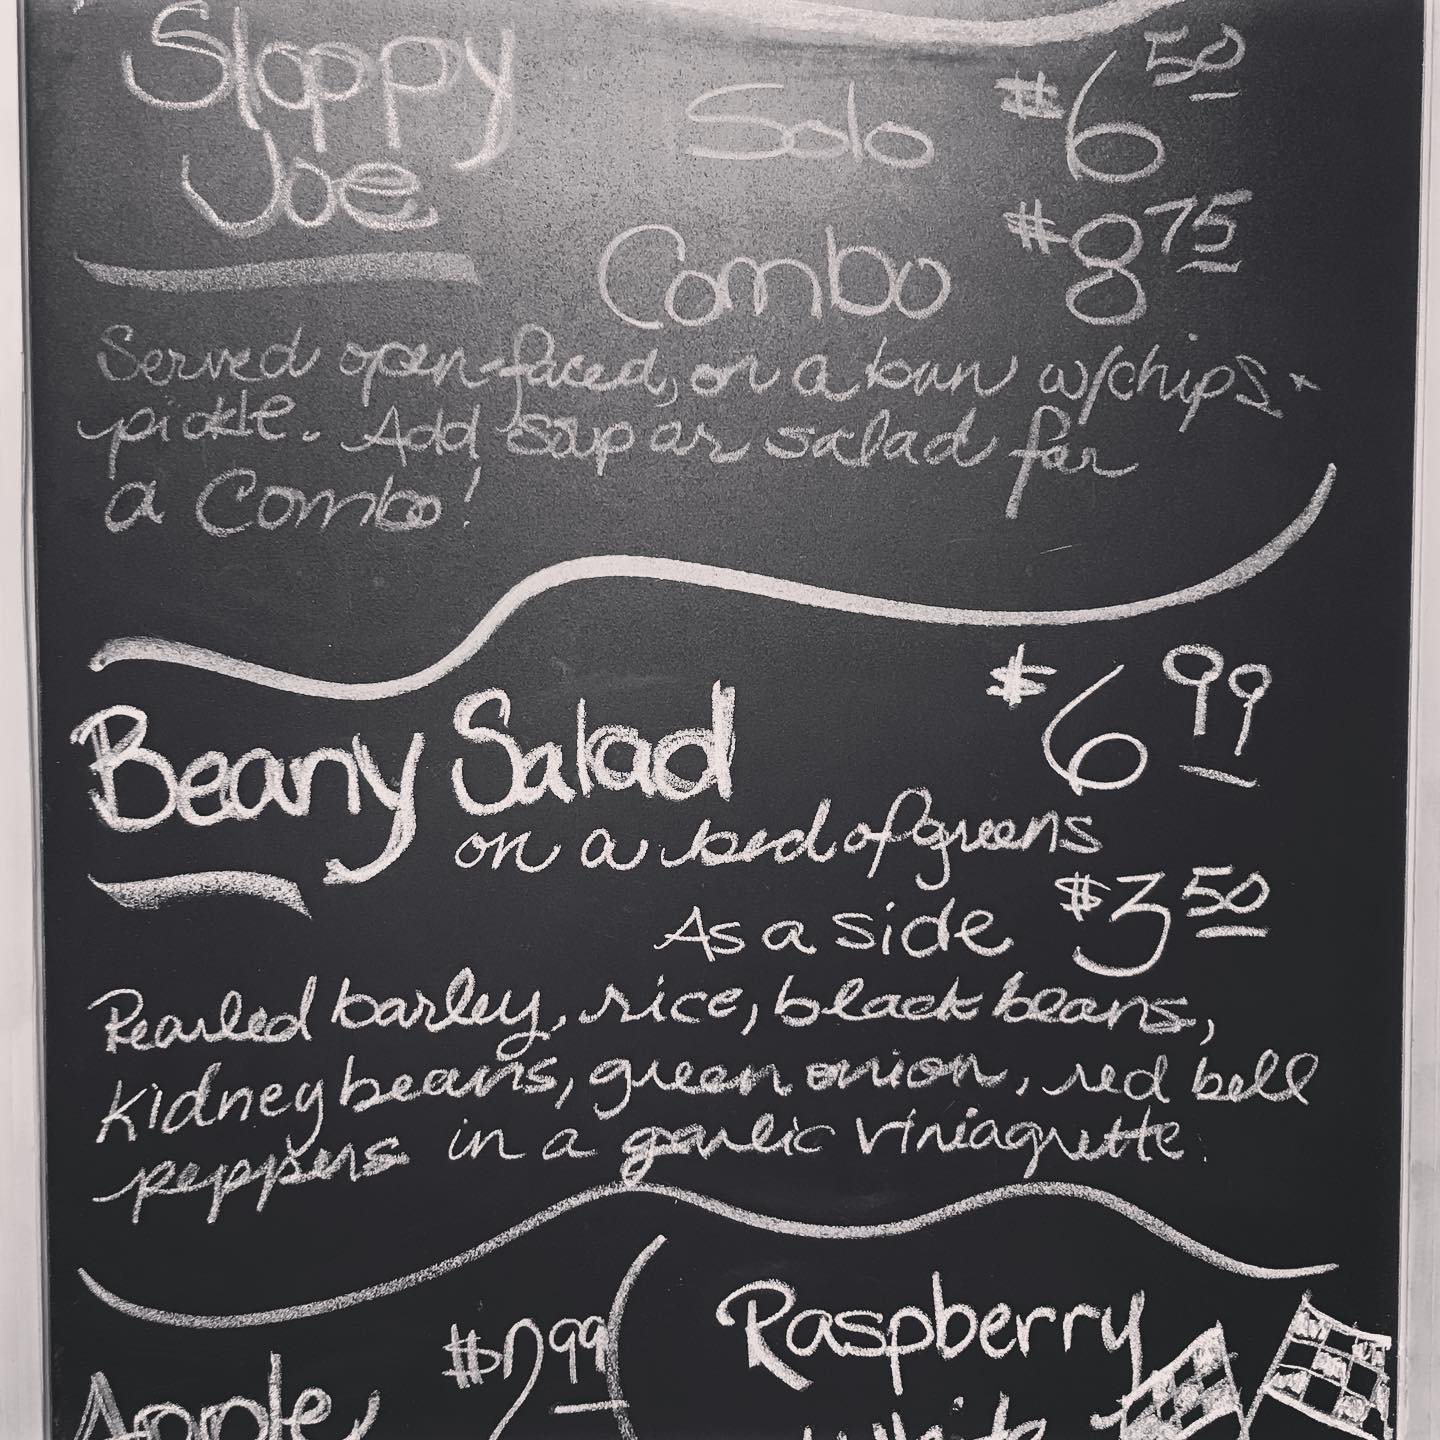 Sloppy Joe
Solo $6 50
Combo $8 75
Served open-faced, on a bun w/chips +
pickle. Add soup or salad for
a Combo!
Beany Salad $6 99
on a bed of greens
As a side $3 50
Pearled barley, rice, black beans,
kidney beans, green onion, red bell
peppers in a garlic viniagrette.
Apple $2 99
Raspberry
White